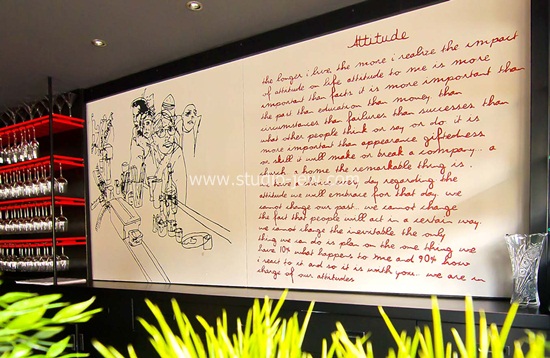 Attitude
the longer i live, the more i realize the impact
of attitude on life attitude to me is more
important than facts it is more important than
the past than education than money than
circumstances than failures than successes than
what other people think or say or do it is
more important than appearance giftedness
or skill it will make or break a company... a
church a home the remarkable thing is.
we have a choice every day regarding the
attitude we will embrace for that day we
cannot change our past. we cannot change
the fact that people will act in a certain way.
we cannot change the inevitable the only
thing we can do is play on the one thing we
have 10% what happens to me and 90% how
i react to it and so it is with you.. we are in
charge of our attitudes
www.studio-lexy.com